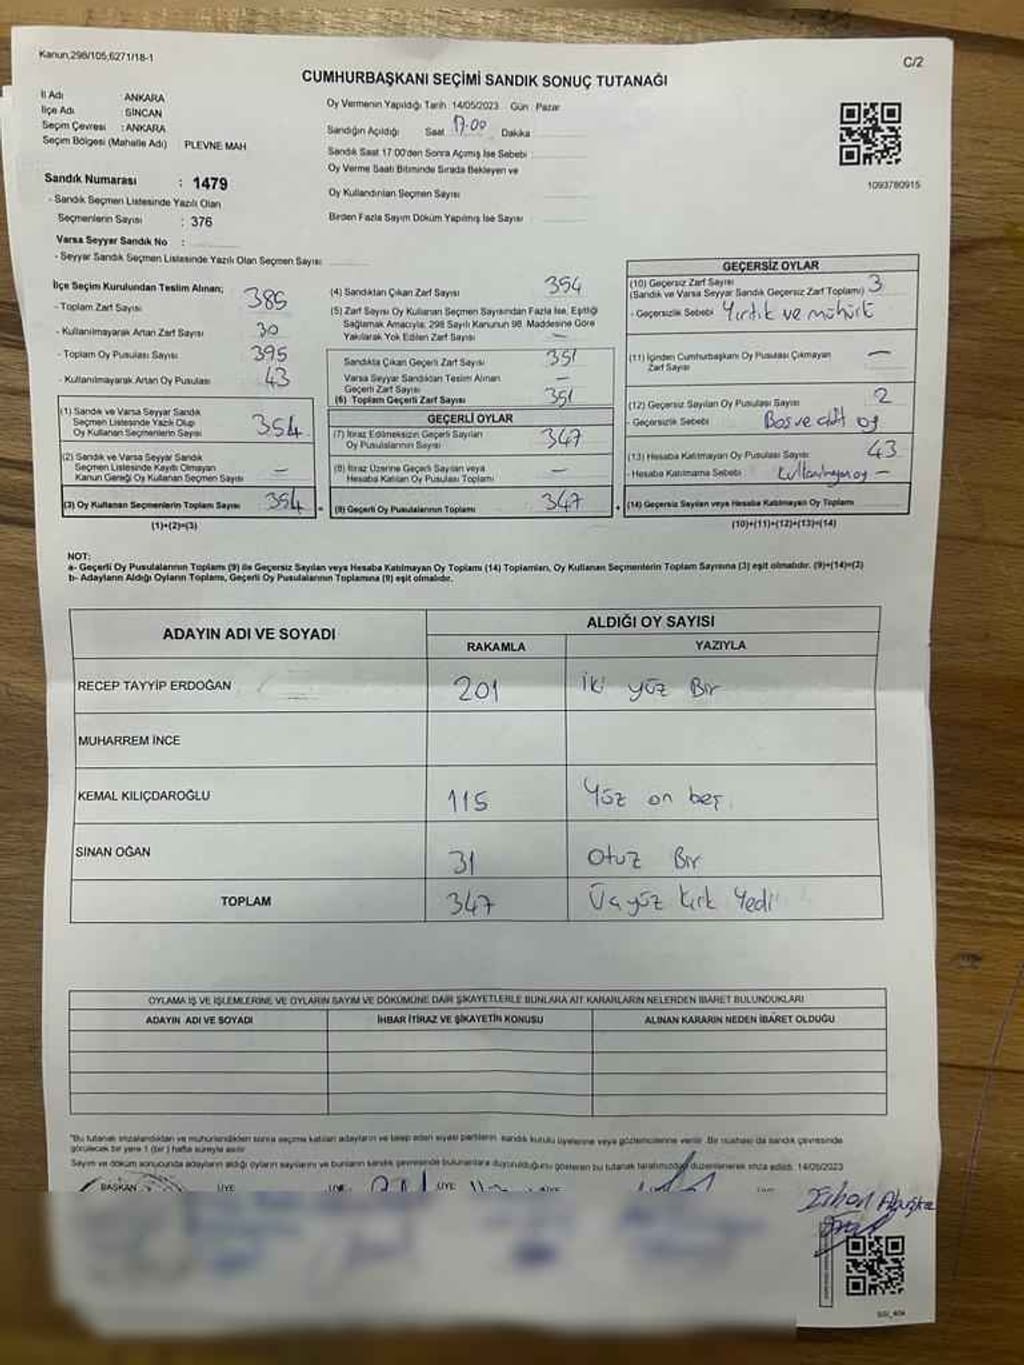 Kanun,298/105,6271/18-1
C/2
CUMHURBAŞKANI SEÇİMİ SANDIK SONUÇ TUTANAĞI
İl Adı ANKARA
İlçe Adı SİNCAN
Seçim Çevresi : ANKARA
Seçim Bölgesi (Mahalle Adı) PLEVNE MAH
Oy Vermenin Yapıldığı Tarih 14/05/2023 Gün : Pazar
Sandığın Açıldığı Saat 17.00 Dakika
Sandık Saat 17.00'den Sonra Açımış İse Sebebi :
Oy Verme Saati Bitiminde Sırada Bekleyen ve
Oy Kullandırılan Seçmen Sayısı
Birden Fazla Sayım Döküm Yapılmış İse Sayısı
1093780915
Sandık Numarası : 1479
- Sandık Seçmen Listesinde Yazılı Olan
Seçmenlerin Sayısı : 376
Varsa Seyyar Sandık No :
- Seyyar Sandık Seçmen Listesinde Yazılı Olan Seçmen Sayısı:
İlçe Seçim Kurulundan Teslim Alınan;
- Toplam Zarf Sayısı 385
- Kullanılmayarak Artan Zarf Sayısı 30
- Toplam Oy Pusulası Sayısı 395
- Kullanılmayarak Artan Oy Pusulası 43
(1) Sandık ve Varsa Seyyar Sandık
Seçmen Listesinde Yazılı Olup
Oy Kullanan Seçmenlerin Sayısı 354
(2) Sandık ve Varsa Seyyar Sandık
Seçmen Listesinde Kayıtlı Olmayan
Kanun Gereği Oy Kullanan Seçmen Sayısı —
(3) Oy Kullanan Seçmenlerin Toplam Sayısı 354 =
(1)+(2)=(3)
(4) Sandıktan Çıkan Zarf Sayısı 354
(5) Zarf Sayısı Oy Kullanan Seçmen Sayısından Fazla İse, Eşitliği
Sağlamak Amacıyla; 298 Sayılı Kanunun 98. Maddesine Göre
Yakılarak Yok Edilen Zarf Sayısı —
Sandıkta Çıkan Geçerli Zarf Sayısı 351
Varsa Seyyar Sandıktan Teslim Alınan
Geçerli Zarf Sayısı —
(6) Toplam Geçerli Zarf Sayısı 351
GEÇERLİ OYLAR
(7) İtiraz Edilmeksizin Geçerli Sayılan
Oy Pusulalarının Sayısı 347
(8) İtiraz Üzerine Geçerli Sayılan veya
Hesaba Katılan Oy Pusulası Toplamı —
(9) Geçerli Oy Pusulalarının Toplamı 347 +
GEÇERSİZ OYLAR
(10) Geçersiz Zarf Sayısı
(Sandık ve Varsa Seyyar Sandık Geçersiz Zarf Toplamı) 3
- Geçersizlik Sebebi Yırtık ve mühürt
(11) İçinden Cumhurbaşkanı Oy Pusulası Çıkmayan
Zarf Sayısı —
(12) Geçersiz Sayılan Oy Pusulası Sayısı 2
- Geçersizlik Sebebi Boş ve çift oy
(13) Hesaba Katılmayan Oy Pusulası Sayısı 43
- Hesaba Katılmama Sebebi —
(14) Geçersiz Sayılan veya Hesaba Katılmayan Oy Toplamı
(10)+(11)+(12)+(13)=(14)
NOT:
a- Geçerli Oy Pusulalarının Toplamı (9) ile Geçersiz Sayılan veya Hesaba Katılmayan Oy Toplamı (14) Toplamları, Oy Kullanan Seçmenlerin Toplam Sayısına (3) eşit olmalıdır. (9)+(14)=(3)
b- Adayların Aldığı Oyların Toplamı, Geçerli Oy Pusulalarının Toplamına (9) eşit olmalıdır.
ADAYIN ADI VE SOYADI
ALDIĞI OY SAYISI
RAKAMLA YAZIYLA
RECEP TAYYİP ERDOĞAN 201 iki yüz Bir
MUHARREM İNCE
KEMAL KILIÇDAROĞLU 115 Yüz on beş
SİNAN OĞAN 31 Otuz Bir
TOPLAM 347 Üçyüz Kırk Yedi
OYLAMA İŞ VE İŞLEMLERİNE VE OYLARIN SAYIM VE DÖKÜMÜNE DAİR ŞİKAYETLERLE BUNLARA AİT KARARLARIN NELERDEN İBARET BULUNDUKLARI
ADAYIN ADI VE SOYADI İHBAR İTİRAZ VE ŞİKAYETİN KONUSU ALINAN KARARIN NEDEN İBARET OLDUĞU
*Bu tutanak imzalandıktan ve mühürlendikten sonra seçime katılan adayların ve talep eden siyasi partilerin, sandık kurulu üyelerine veya gözlemcilerine verilir. Bir nüshası da sandık çevresinde
görülecek bir yere 1 (bir) hafta süreyle asılır
Sayım ve döküm sonucunda adayların aldığı oyların sayılarını ve bunların sandık çevresinde bulunanlara duyurulduğunu gösteren bu tutanak tarafımızdan düzenlenerek imza edildi. 14/05/2023
BAŞKAN ÜYE ÜYE ÜYE